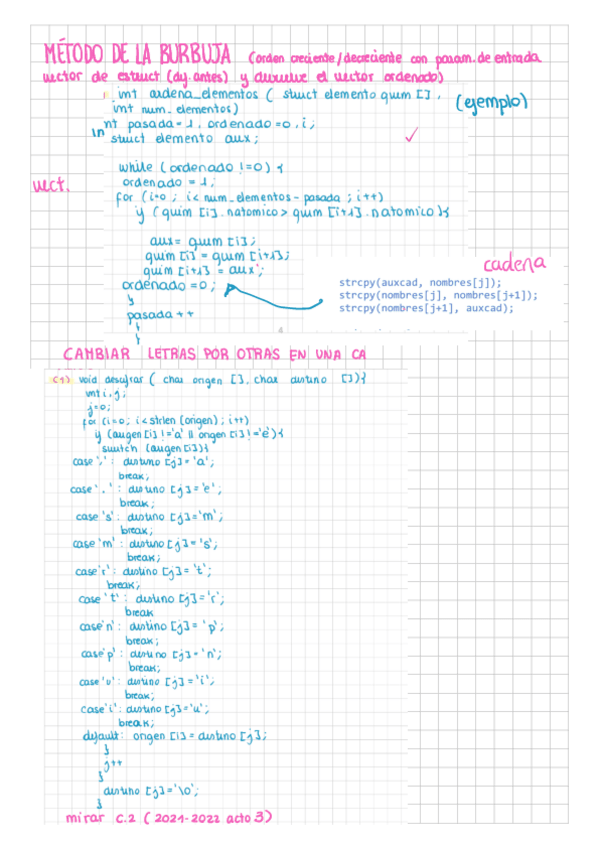 MÉTODO DE LA BURBUJA (orden creciente/decreciente con param. de entrada
vector de estruct (dy. antes) y devuelve el vector ordenado)
int ordena_elementos ( struct elemento quim [],
int num_elementos)
(ejemplo)
int pasada = 1, ordenado = 0, i;
struct elemento aux;
while ( ordenado != 0) {
ordenado = 1;
vect.
for (i=0 ; i< num_elementos - pasada ; i++)
if (quim [i].natomico > quim [i+1].natomico){
aux = quim [i];
quim [i] = quim [i+1];
quim [i+1] = aux;
cadena
ordenado = 0;
strcpy(auxcad, nombres[j]);
strcpy(nombres[j], nombres[j+1]);
strcpy(nombres[j+1], auxcad);
}
pasada ++
4
}
}
CAMBIAR LETRAS POR OTRAS EN UNA CA
C1) void descifrar ( char origen [], char destino []){
int i, j;
j=0;
for (i=0; i<strlen (origen) ; i++)
if (origen [i] != 'a' || origen [i] != 'e'){
switch (origen [i]){
case ',' : destino [j] = 'a';
break;
case '.' : destino [j] = 'e';
break;
case 's' : destino [j] = 'm';
break;
case 'm' : destino [j] = 's';
break;
case 'r' : destino [j] = 't';
break;
case 't' : destino [j] = 'r';
break
case 'n' : destino [j] = 'p';
break;
case 'p' : destino [j] = 'n';
break;
case 'u' : destino [j] = 'i';
break;
case 'i' : destino [j] = 'u';
break;
default : origen [i] = destino [j];
}
j++
}
destino [j] = '\0';
}
mirar C.2 ( 2021-2022 acto 3)